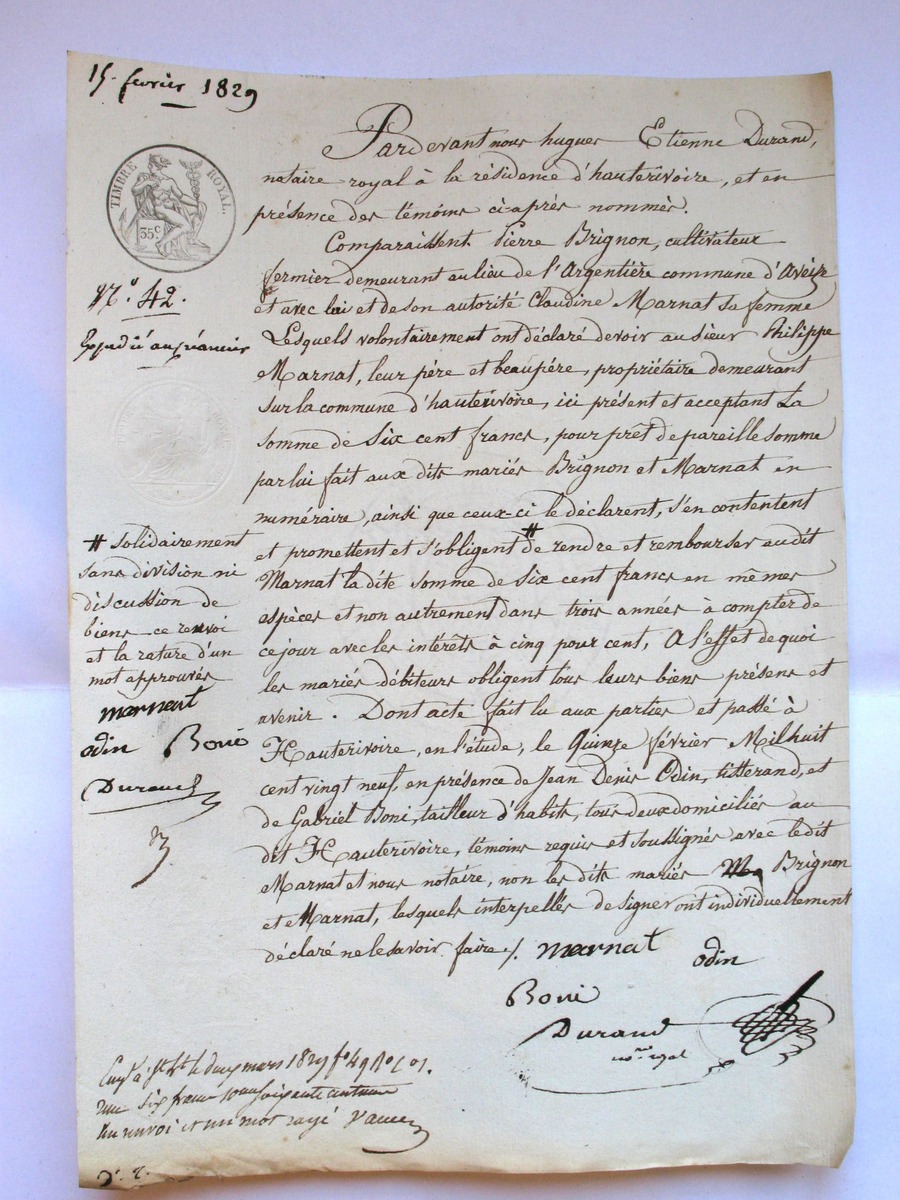 15. fevrier 1829
TIMBRE ROYAL.
35c.
N.° 42.
Expédié au créancier
Pardevant nous hugues Etienne Durand,
notaire royal à la résidence d'hauterivoire, et en
présence des témoins ci-après nommés.
Comparaissent Pierre Brignon, cultivateur
fermier demeurant au lieu de l'Argentière commune d'Aveize
et avec lui et de son autorité Claudine Marnat sa femme
Lesquels volontairement ont déclaré devoir au sieur Philippe
Marnat, leur père et beaupère, propriétaire demeurant
sur la commune d'hauterivoire, ici présent et acceptant La
somme de Six cent francs, pour prêt de pareille somme
par lui fait aux dits mariés Brignon et Marnat en
numéraire, ainsi que ceux-ci le déclarent, s'en contentent
et promettent et s'obligent # de rendre et rembourser audit
Marnat la dite somme de six cent francs en mêmes
espèces et non autrement dans trois années à compter de
ce jour avec les intérêts à cinq pour cent, A l'effet de quoi
les mariés débiteurs obligent tous leurs biens présens et
avenir. Dont acte fait lu aux parties et passé à
Hauterivoire, en l'étude, le Quinze février Mil huit
cent vingt neuf, en présence de Jean Denis Odin, titterand, et
de Gabriel Boni, tailleur d'habits, tous deux domiciliés au
dit Hauterivoire, témoins requis et soussignés avec le dit
Marnat et nous notaire, non les dits mariés Brignon
et Marnat, lesquels interpellés de signer ont individuellement
déclaré ne le savoir faire /.
# solidairement
sans division ni
discussion de
biens ce renvoi
et la rature d'un
mot approuvés
marnat
odin Boni
Durand
marnat
odin
Boni
Durand
no.re royal
mars 1829 f° 49
six francs soixante
un renvoi et un mot rayé